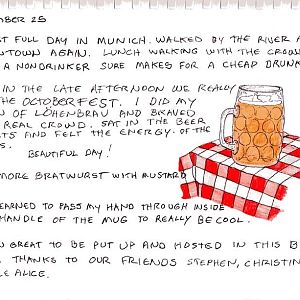 MBER 25
ST FULL DAY IN MUNICH. WALKED BY THE RIVER A
NTOWN AGAIN. LUNCH WALKING WITH THE CROWD
A NONDRINKER SURE MAKES FOR A CHEAP DRUNK
IN THE LATE AFTERNOON WE REALLY
HE OCTOBERFEST. I DID MY
N OF LÖHENBRAU AND BRAVED
REAL CROWD. SAT IN THE BEER
TS AND FELT THE ENERGY. OF THE
S.
BEAUTIFUL DAY!
MORE BRATWURST WITH MUSTARD
EARNED TO PASS MY HAND THROUGH INSIDE
HANDLE OF THE MUG TO REALLY BE COOL.
N GREAT TO BE PUT UP AND HOSTED IN THIS B
THANKS TO OUR FRIENDS STEPHEN, CHRISTIN
LE ALICE.